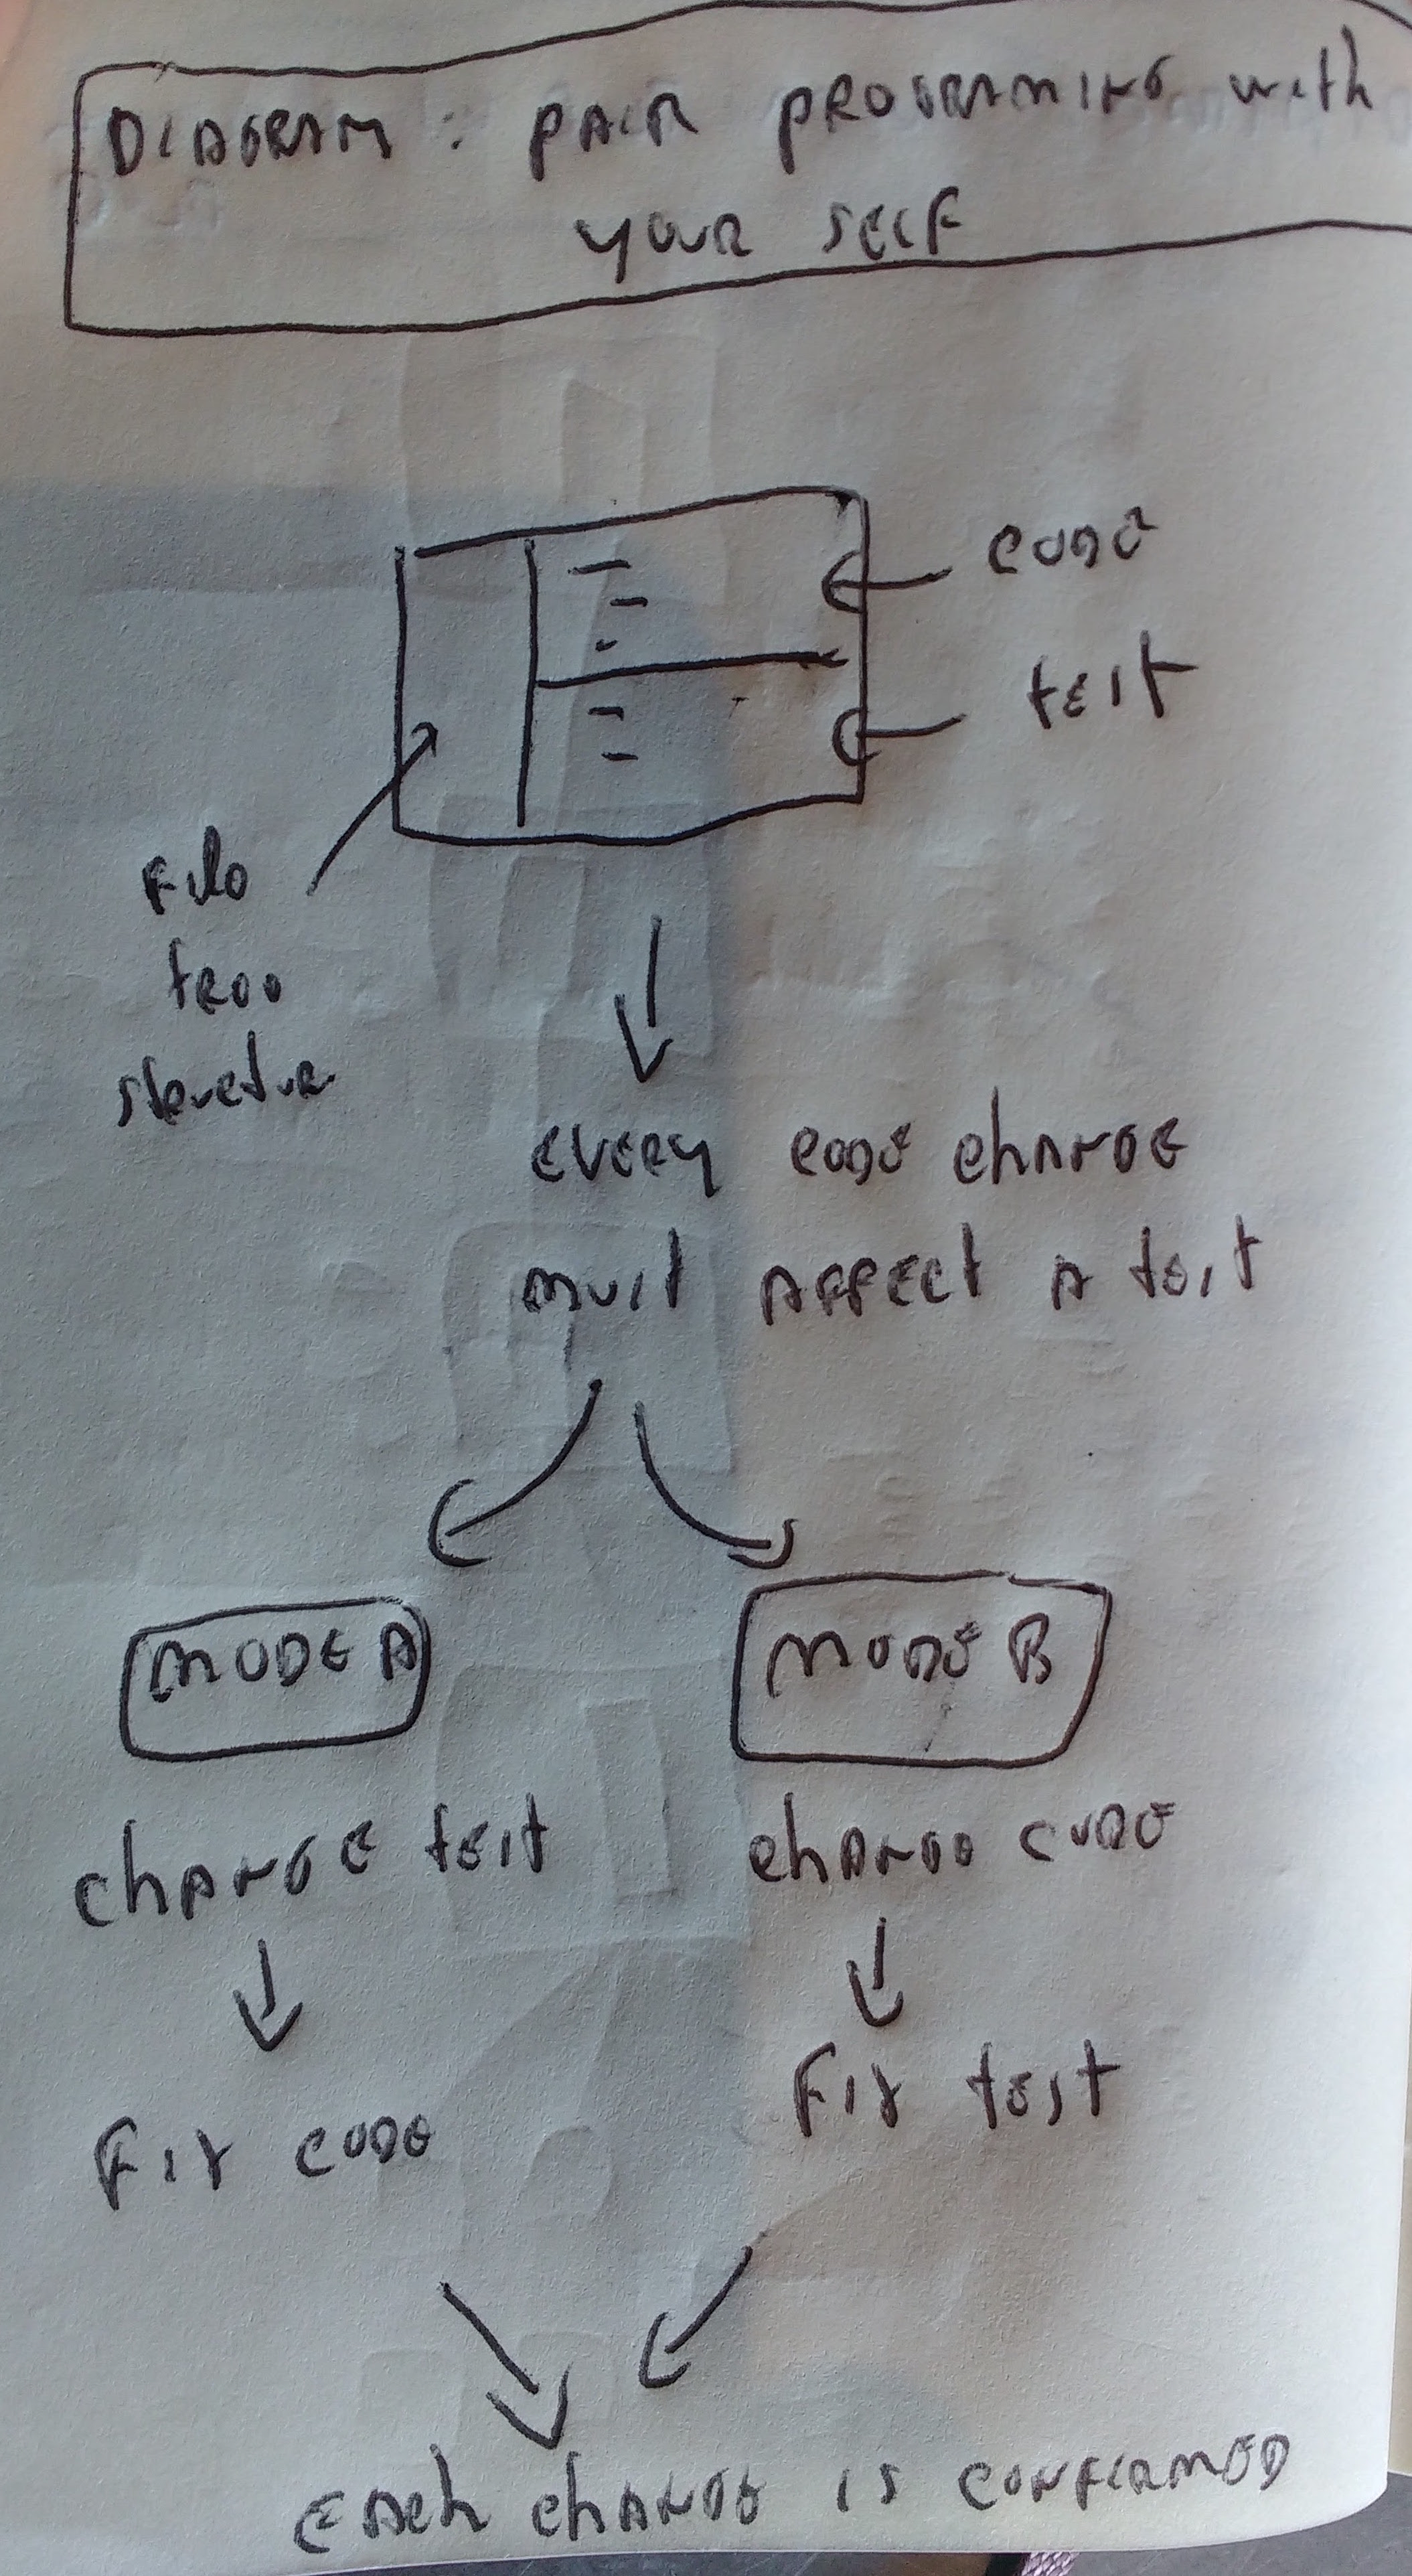 DIAGRAM: PAIR PROGRAMING with
YOUR SELF
CODE
test
File
tree
structur
EVERY CODE change
must AFFECT A test
MODE A
MODE B
change test
change code
Fix code
Fix test
Each change is confirmed